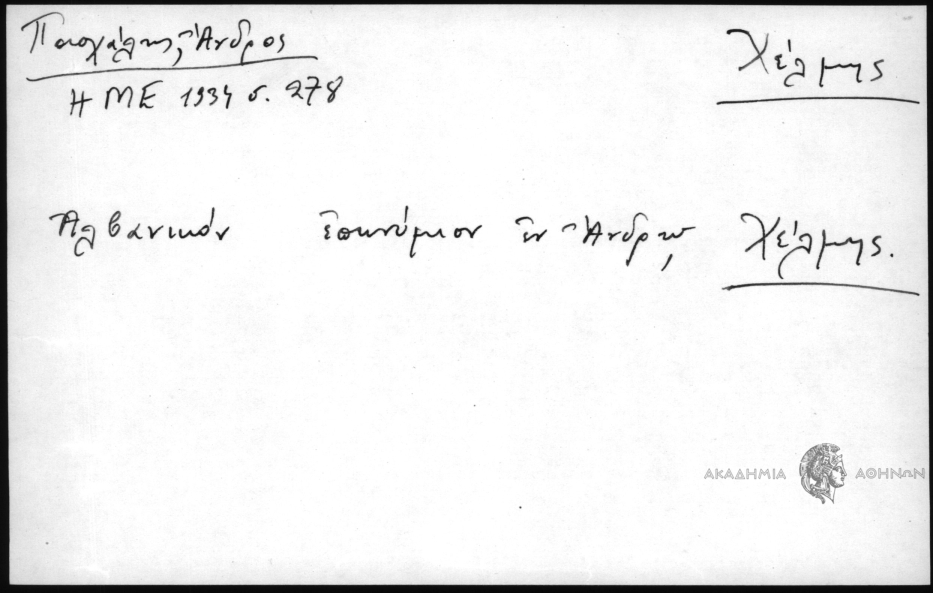 Πασχάλης, Ἄνδρος
ΗΜΕ 1934 σ. 278
Χέλμης
Ἀλβανικόν ἐπώνυμον ἐν Ἄνδρῳ Χέλμης.
ΑΚΑΔΗΜΙΑ ΑΘΗΝΩΝ